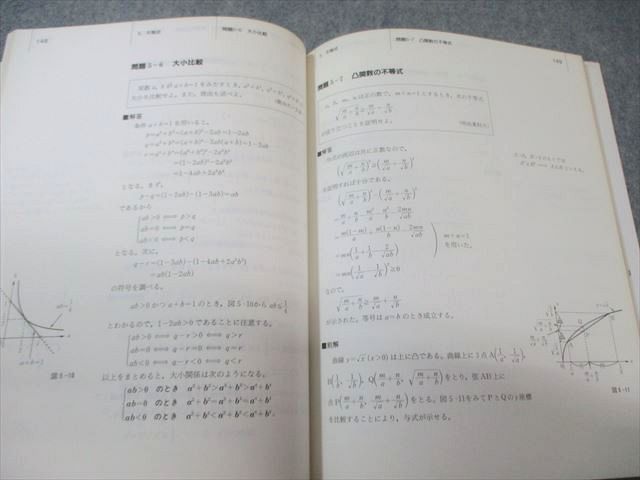 148
5. 不等式
問題5-6 大小比較
問題5-6 大小比較
実数 a, b が a+b=1 をみたすとき,
大小を比較せよ。また,
■解答
条件 a+b=1 を用いると,
p=a²+b²=(a+b)²-2ab=1-2ab
q=a³+b³=(a+b)³-3ab(a+b)=1-3ab
r=a⁴+b⁴=(a²+b²)²-2a²b²
=(1-2ab)²-2a²b²
=1-4ab+2a²b²
となる。まず,
p-q=(1-2ab)-(1-3ab)=ab
であるから
ab>0 ⟺ p>q
ab=0 ⟺ p=q
ab<0 ⟺ p<q
となる。次に,
q-r=(1-3ab)-(1-4ab+2a²b²)
=ab(1-2ab)
の符号を調べる。
ab>0 かつ a+b=1 のとき, 図5-10から ab≦1/4
とわかるので, 1-2ab>0 であることに注意する。
ab>0 ⟺ q-r>0 ⟺ q>r
ab=0 ⟺ q-r=0 ⟺ q=r
ab<0 ⟺ q-r<0 ⟺ q<r
以上をまとめると, 大小関係は次のようになる。
ab>0 のとき a²+b²>a³+b³>a⁴+b⁴
ab=0 のとき a²+b²=a³+b³=a⁴+b⁴
ab<0 のとき a²+b²<a³+b³<a⁴+b⁴
ab=1/4
a+b=1
図5-10
5. 不等式
問題5-7 凸関数の不等式
149
問題5-7 凸関数の不等式
a, b, m, n は正の数で, m+n=1 とするとき, 次の不等式
√(m/a+n/b)≧m/√a+n/√b
が成り立つことを証明せよ。
■解答
与式の両辺は共に正数なので,
(√(m/a+n/b))²≧(m/√a+n/√b)²
を証明すれば十分である。
(√(m/a+n/b))²-(m/√a+n/√b)²
=m/a+n/b-m²/a-n²/b-2mn/√ab
=m(1-m)/a+n(1-n)/b-2mn/√ab
=mn(1/a+1/b-2/√ab)
=mn(1/√a-1/√b)²≧0
m+n=1
を用いた。
なので,
√(m/a+n/b)≧m/√a+n/√b
が示された。等号は a=b のとき成立する。
■別解
曲線 y=√x (x>0) は上に凸である。曲線上に3点 A(1/a, 1/√a),
B(1/b, 1/√b), Q(m/a+n/b, √(m/a+n/b)) をとり, 弦AB上に
点P(m/a+n/b, m/√a+n/√b) をとる。図5-11をみてPとQのy座標
を比較することにより, 与式が示せる。
y=√x
図5-11